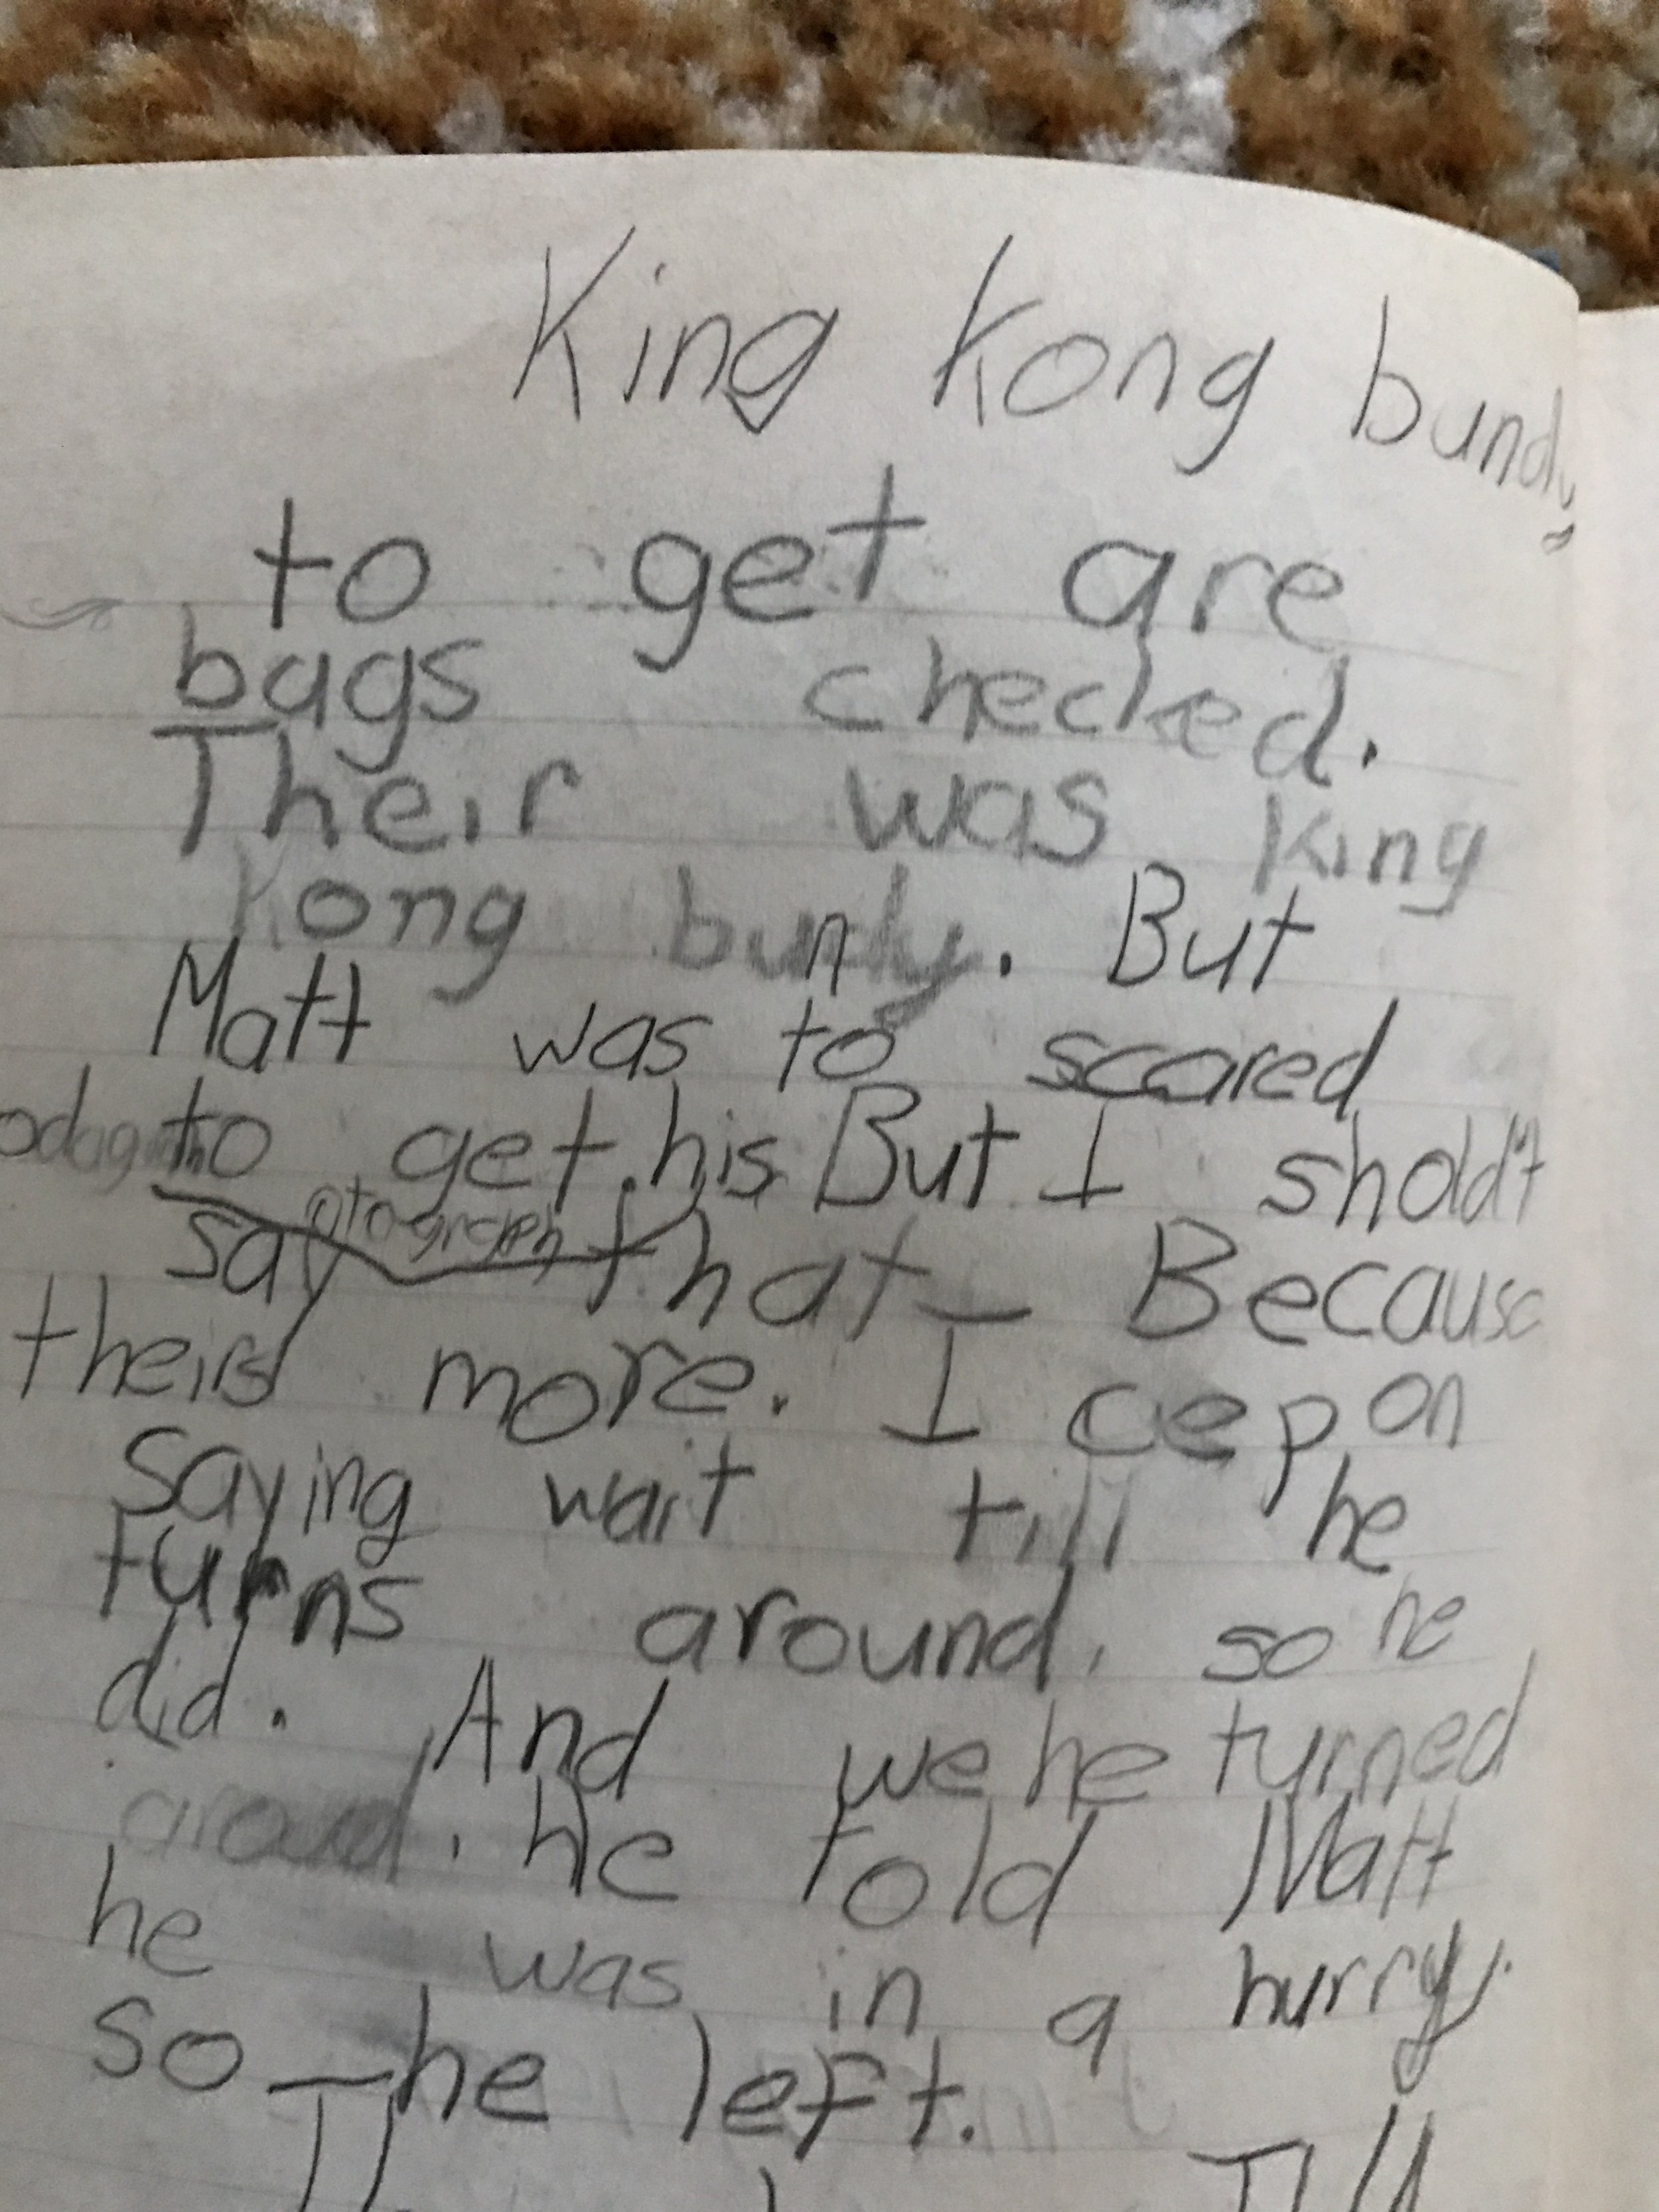 King Kong bundy
to get are
bags checked.
Their was King
Kong bundy. But
Matt was to scared
to get his But I shold't
otograph
say that Because
theirs more. I cep on
saying wait till he
turns around. so he
did. And we he turned
around. he told Matt
he was in a hurry.
so he left.